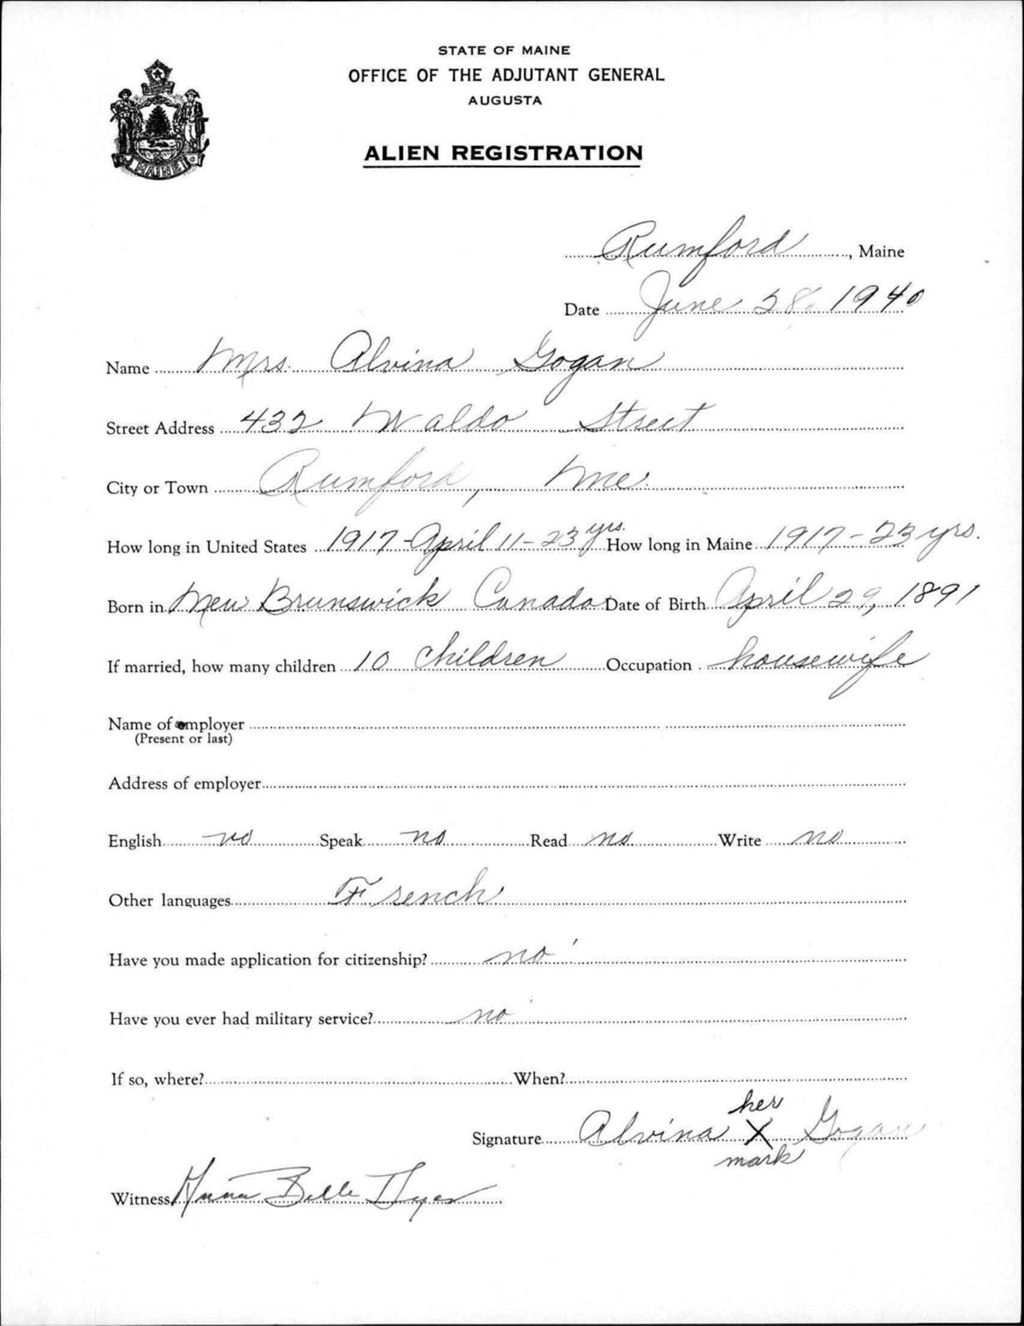 STATE OF MAINE
OFFICE OF THE ADJUTANT GENERAL
AUGUSTA
ALIEN REGISTRATION
MAINE
Rumford, Maine
Date June 28, 1940
Name Mrs. Alvina Gogan
Street Address 432 Waldo Street
City or Town Rumford, Me.
How long in United States 1917-April 11-23 yrs. How long in Maine 1917-23 yrs.
Born in New Brunswick Canada Date of Birth April 29, 1891
If married, how many children 10 children Occupation housewife
Name of employer
(Present or last)
Address of employer
English no Speak no Read no Write no
Other languages French
Have you made application for citizenship? no
Have you ever had military service? no
If so, where? When?
her
Signature Alvina X Gogan
mark
Witness Belle